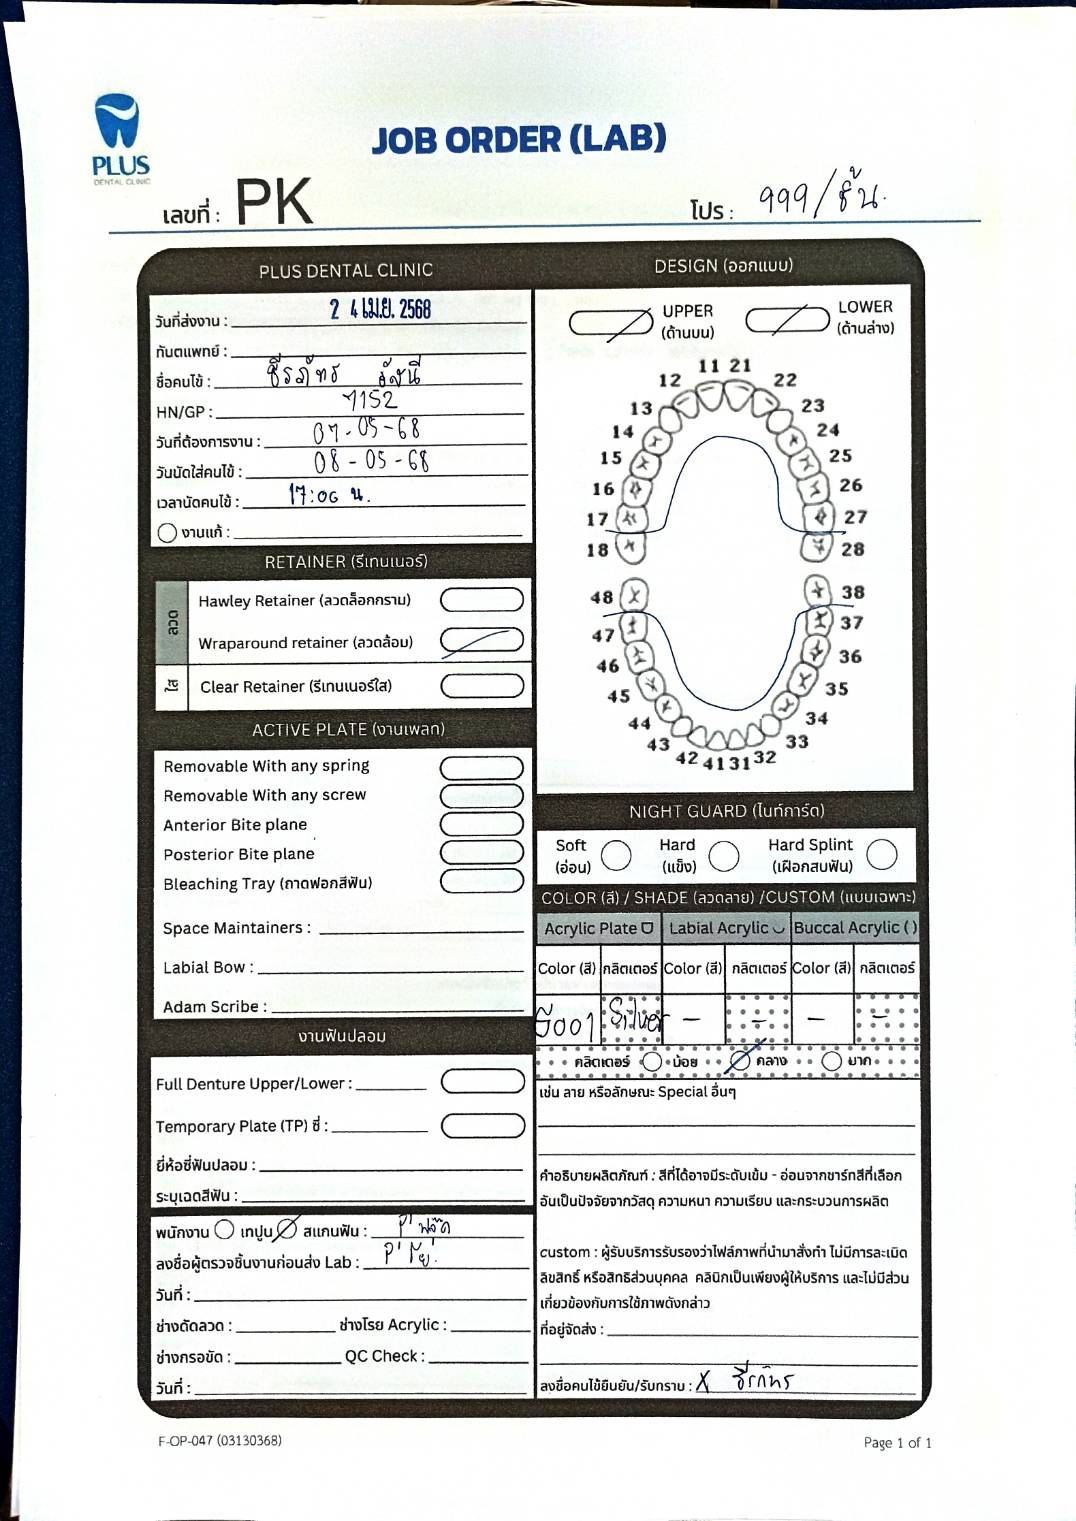 PLUS
DENTAL CLINIC
JOB ORDER (LAB)
เลขที่ : PK
โปร : 999/ชิ้น.
PLUS DENTAL CLINIC
วันที่ส่งงาน : 24 เม.ย. 2568
ทันตแพทย์ :
ชื่อคนไข้ : ธีรภัทร
HN/GP : 7152
วันที่ต้องการงาน : 07-05-68
วันนัดใส่คนไข้ : 08-05-68
เวลานัดคนไข้ : 17:00 น.
งานแก้ :
RETAINER (รีเทนเนอร์)
ลวด
Hawley Retainer (ลวดล็อกกราม)
Wraparound retainer (ลวดล้อม)
ใส
Clear Retainer (รีเทนเนอร์ใส)
ACTIVE PLATE (งานเพลท)
Removable With any spring
Removable With any screw
Anterior Bite plane
Posterior Bite plane
Bleaching Tray (ถาดฟอกสีฟัน)
Space Maintainers :
Labial Bow :
Adam Scribe :
งานฟันปลอม
Full Denture Upper/Lower :
Temporary Plate (TP) ซี่ :
ยี่ห้อซี่ฟันปลอม :
ระบุเฉดสีฟัน :
พนักงาน เทปูน สแกนฟัน :
ลงชื่อผู้ตรวจชิ้นงานก่อนส่ง Lab :
วันที่ :
ช่างดัดลวด : ช่างโรย Acrylic :
ช่างกรอขัด : QC Check :
วันที่ :
DESIGN (ออกแบบ)
UPPER
(ด้านบน)
LOWER
(ด้านล่าง)
11 21
12 22
13 23
14 24
15 25
16 26
17 27
18 28
48 38
47 37
46 36
45 35
44 34
43 33
42 41 31 32
NIGHT GUARD (ไนท์การ์ด)
Soft
(อ่อน)
Hard
(แข็ง)
Hard Splint
(เฝือกสบฟัน)
COLOR (สี) / SHADE (ลวดลาย) /CUSTOM (แบบเฉพาะ)
Acrylic Plate Labial Acrylic Buccal Acrylic ( )
Color (สี) กลิตเตอร์ Color (สี) กลิตเตอร์ Color (สี) กลิตเตอร์
001 Silver - - - -
กลิตเตอร์ น้อย กลาง มาก
เช่น ลาย หรือลักษณะ Special อื่นๆ
คำอธิบายผลิตภัณฑ์ : สีที่ได้อาจมีระดับเข้ม - อ่อนจากชาร์ทสีที่เลือก
อันเป็นปัจจัยจากวัสดุ ความหนา ความเรียบ และกระบวนการผลิต
custom : ผู้รับบริการรับรองว่าไฟล์ภาพที่นำมาสั่งทำ ไม่มีการละเมิด
ลิขสิทธิ์ หรือสิทธิส่วนบุคคล คลินิกเป็นเพียงผู้ให้บริการ และไม่มีส่วน
เกี่ยวข้องกับการใช้ภาพดังกล่าว
ที่อยู่จัดส่ง :
ลงชื่อคนไข้ยืนยัน/รับทราบ : X ธีรภัทร
F-OP-047 (03130368)
Page 1 of 1